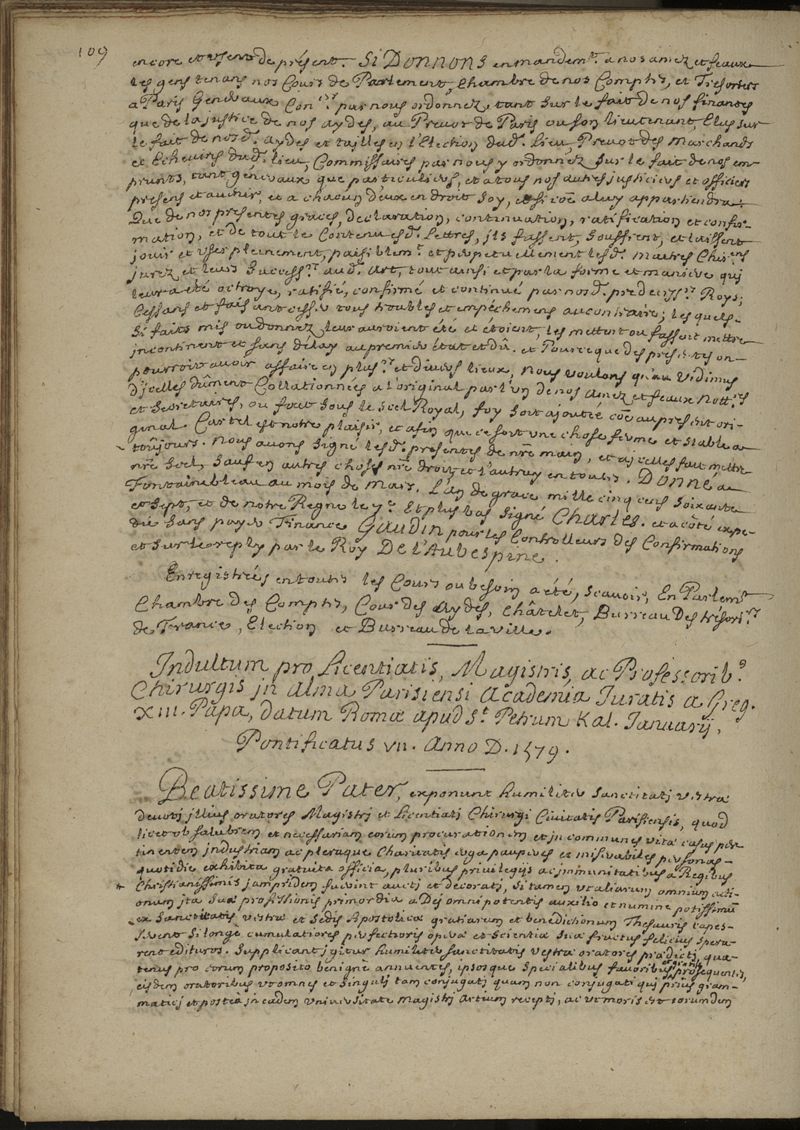 109
encore et usent de présent. Si Donnons en mandem.t a nos amez et feaux
les gens tenans nos Cours de Parlement, Chambre de nos Comptes, et Tresoriers
a Paris Generaux Con.ers par nous ordonnez, tant sur le fait de nos finances
que de la justice de nos aydes, au Prevost de Paris ou son lieutenant, Elus sur
le fait de nosd. aydes et tailles en l'Election dud. lieu, Prevost des Marchands
et Echevins dud. lieu, Commissaires par nous y ordonnez sur le fait de nos em-
prunts, tant generaux que particuliers, et a tous nos autres justiciers et officiers
presens et a venir, et a chacun d'eux en droit soy, et si coẽ a luy appartiendra;
Que de nos presentes graces, declaration, continuation, ratification et confir-
mation, et de tout le Contenu esd. Lettres, ils fassent, souffrent, et laissent
jouir et user plainement, paisiblem.t et perpetuellement lesd. maitres Chir.ens
jurez et leurs Success.rs aud. art, tout ainsi et par la forme et maniere qui
leur a été octroyé, ratifié, confirmé et continué par nosd. predecess.rs Roys;
Cessans et fais ant cesser tous troubles et empêchemens au contraire; les quels
Si faits mis ou donnez leur avoient été et étoient, les mettent ou fassent mettre
incontinent et sans delay au premier état et dû. et Pource que des presentes on
pourroit avoir affaire en plus.rs et divers lieux, nous voulons qu'au Vidimus
d'jcelles dûment Collationnées a l'original par l'un de nos amez et feaux Nott.res
et Secretaires, ou fait sous le scel Royal, foy soit ajoutée coẽ au present ori-
ginal. Car tel est notre plaisir, et afin que ce soit une chose ferme et stable a
toûjours. nous avons signé lesd. presentes de nr̃e main, et a jcelles fait mettre
nr̃e Scel, sauf en autres choses nr̃e droit et l'autruy en toutes. Donné a
Fontainebleau au mois de Mars. L'an de grace mille cinq cens soixante
et sept, et de notre Regne le 7.e Et plus bas signé Charles. et a côté expe-
die sans payer Finance Gaudin pour les Controlleurs des Confirmations
et sur le reply par le Roy De l'Aubespine.
Enregistrées en toutes les Cours ou besoin a été, Scavoir, En Parlem.t
Chambre des Comptes, Cour des Aydes, Châtelet, Bureau des tresori.rs
de France, Election et Bureau de la ville.
Indultum pro Licentiatis, Magistris, ac Professorib.9
Chirurgis jn alma Parisiensi Academia Juratis a Greg.
XIII. Papa, datum Romæ apud S.t Petrum Kal. Januarij,
Pontificatus VII. Anno D. 1579.
Beatissime Pater, exponunt humiliter Sanctitati vestræ
devoti jllius oratores Magistri et Licentiati Chirurgi Civitatis Parisiensis, quod
licet ob salubrem et necessariam eorum procurationem et jn communes vitæ casus per-
tinentem jndustriam ac pleraque charitatis erga pauperes et miserabiles personas
quotidie exhibita gratuita officia, pluribus privilegiis ac jmmunitatibus a Regibus
Christianissimis jampridem fuerint aucti et decorati, si tamen ut aliarum omnium acti-
onum jta suæ professionis primordia a Dei omnipotentis auxilio et numine potissimũ
ex Sanctitatis vestræ et Sedis Apostolicæ gratiarum et benedictionum Thesauris capes-
serent si longe cumulatiores perfectioris operæ et scientiæ suæ fructus felicius spera-
rent edituros. Supplicant jgitur humiliter sanctitatis vestræ oratores prædicti, qua-
tenus pro eorum proposito benigne annuentes, ipsosque specialibus favoribus et gratiis prosequentes,
eisdem oratoribus ut omnes et singuli tam conjugati quam non conjugati qui prius gram-
matici et postea jn eadem universitate magistri artium recepti, ac ut moris est eorundem